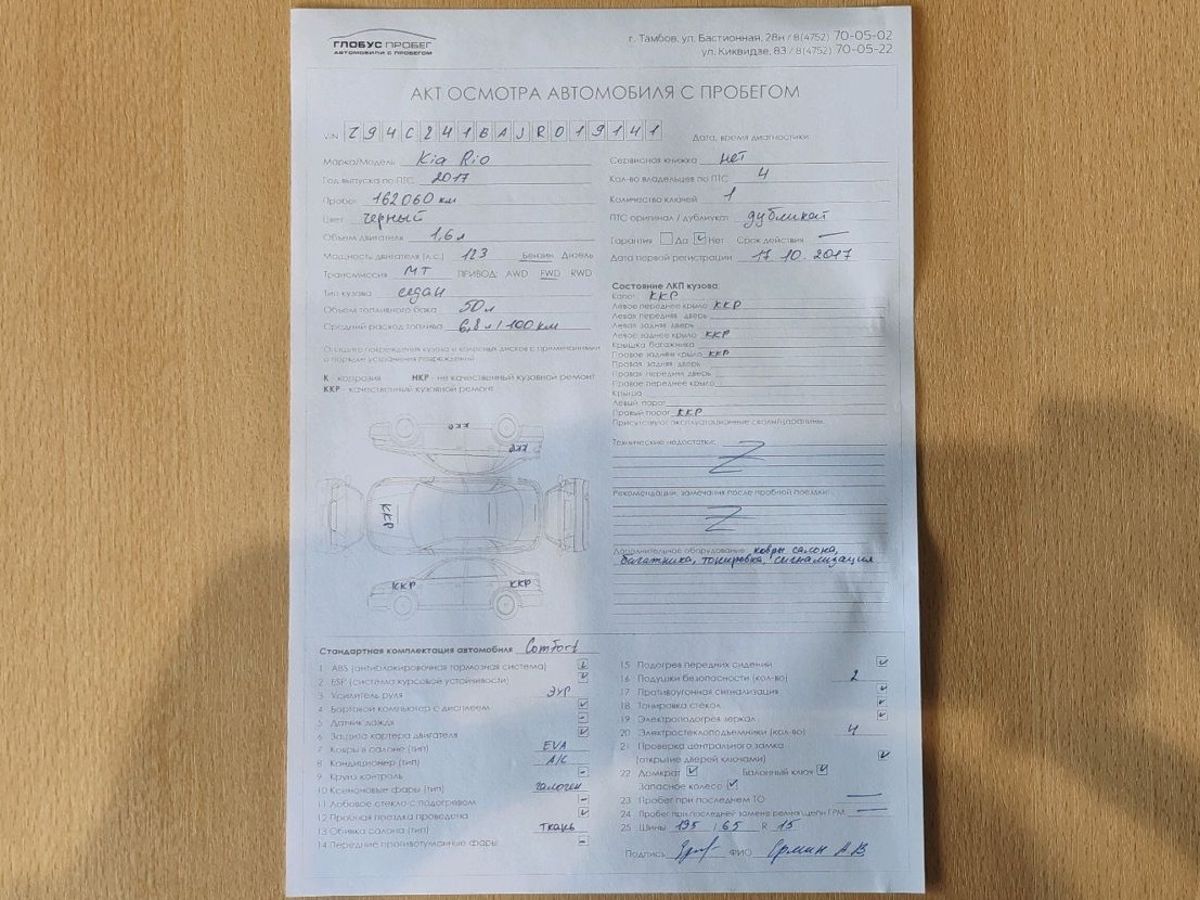 ГЛОБУС ПРОБЕГ
АВТОМОБИЛИ С ПРОБЕГОМ
г. Тамбов, ул. Бастионная, 28н / 8(4752) 70-05-02
ул. Киквидзе, 83 / 8(4752) 70-05-22
АКТ ОСМОТРА АВТОМОБИЛЯ С ПРОБЕГОМ
VIN Z94C241BAJR019141
Дата, время диагностики
Марка/Модель Kia Rio
Год выпуска по ПТС 2017
Пробег 162060 км
Цвет черный
Объем двигателя 1,6 л
Мощность двигателя (л.с.) 123 Бензин Дизель
Трансмиссия МТ ПРИВОД: AWD FWD RWD
Тип кузова седан
Объем топливного бака 50 л
Средний расход топлива 6,8 л / 100 км
Сервисная книжка нет
Кол-во владельцев по ПТС 4
Количество ключей 1
ПТС оригинал / дубликат дубликат
Гарантия Да Нет Срок действия —
Дата первой регистрации 17.10.2017
Опишите повреждения кузова и колесных дисков с примечаниями
о порядке устранения повреждений
К - коррозия НКР - не качественный кузовной ремонт
ККР - качественный кузовной ремонт
ККР
ККР
ККР
ККР
ККР
Состояние ЛКП кузова:
Капот ККР
Левое переднее крыло ККР
Левая передняя дверь
Левая задняя дверь
Левое заднее крыло ККР
Крышка багажника
Правое заднее крыло ККР
Правая задняя дверь
Правая передняя дверь
Правое переднее крыло
Крыша
Левый порог
Правый порог ККР
Присутствуют эксплуатационные сколы/царапины.
Технические недостатки:
Z
Рекомендации, замечания после пробной поездки:
Z
Дополнительное оборудование ковры салона,
багажника, тонировка, сигнализация
Стандартная комплектация автомобиля Comfort
1 ABS (антиблокировочная тормозная система)
2 ESP (система курсовой устойчивости)
3 Усилитель руля ЭУР
4 Бортовой компьютер с дисплеем
5 Датчик дождя -
6 Защита картера двигателя
7 Ковры в салоне (тип) EVA
8 Кондиционер (тип) A/C
9 Круиз контроль -
10 Ксеноновые фары (тип) галоген
11 Лобовое стекло с подогревом -
12 Пробная поездка проведена
13 Обивка салона (тип) ткань
14 Передние противотуманные фары -
15 Подогрев передних сидений
16 Подушки безопасности (кол-во) 2
17 Противоугонная сигнализация
18 Тонировка стекол
19 Электроподогрев зеркал
20 Электростеклоподъемники (кол-во) 4
21 Проверка центрального замка
(открытие дверей ключами)
22 Домкрат Балонный ключ
Запасное колесо
23 Пробег при последнем ТО —
24 Пробег при последней замене ремня/цепи ГРМ —
25 Шины 195 / 65 R 15
Подпись ФИО Ермин А.В